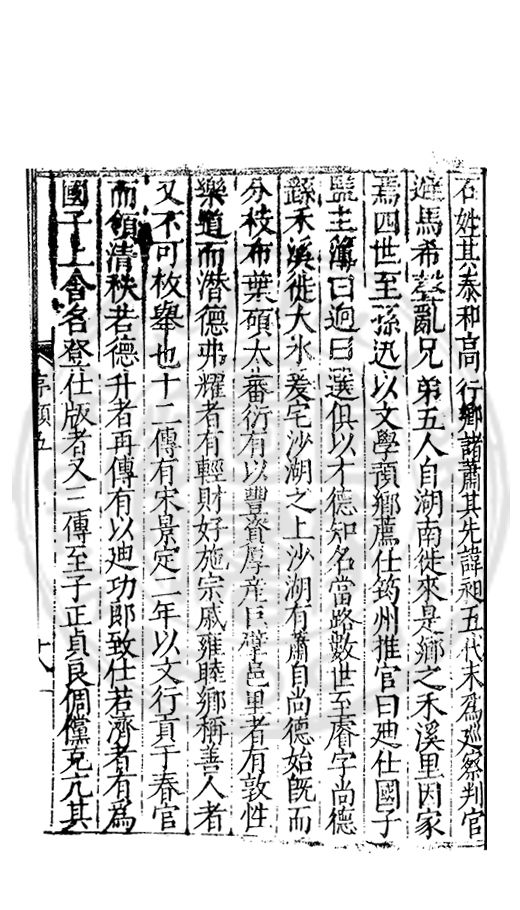 右姓其泰和高行鄉諸蕭其先諱昶五代末爲廵察判官
避馬希聲亂兄弟五人自湖南徙來是鄉之禾溪里因家
焉四世至孫迅以文學預鄉薦仕筠州推官曰廸仕國子
監主簿曰迥曰選俱以才德知名當路數世至睿字尚德
繇禾溪徙大水爰宅沙湖之上沙湖有蕭自尚德始旣而
分枝布葉碩大蕃衍有以豐資厚産巨擘邑里者有敦性
樂道而潛德弗耀者有輕財好施宗戚雍睦鄉稱善人者
又不可枚舉也十二傳有宋景定二年以文行貢于春官
而領清秩若德升者再傳有以廸功郎致仕若濟者有爲
國子上舍名登仕版者又三傳至子正貞良倜儻克亢其
序類五
十八